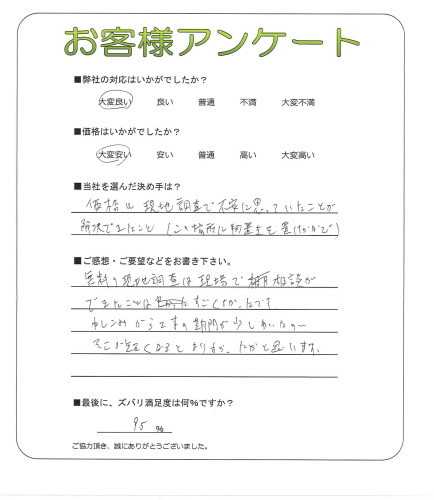 お客様アンケート
■弊社の対応はいかがでしたか？
大変良い 良い 普通 不満 大変不満
■価格はいかがでしたか？
大変安い 安い 普通 高い 大変高い
■当社を選んだ決め手は？
価格と現地調査で不安に思っていたことが
解決できたこと（この場所に物置きを置けるかどか）
■ご感想・ご要望などをお書き下さい。
無料の現地調査は現場で相談が
できたことはすごくよかったです
から工事の期間が少し
そこが短くなるとよりよかったかと思います。
■最後に、ズバリ満足度は何％ですか？
95 ％
ご協力頂き、誠にありがとうございました。